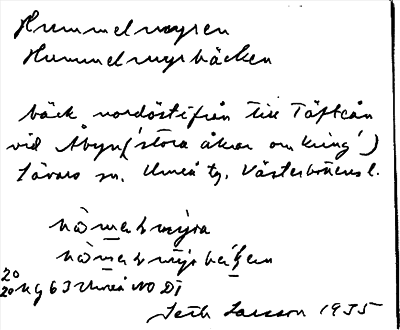 Hummelmyren
Hummelmyrbäcken
bäck nordöstifrån till Täfteån
vid Åbyn ('stora åkrar omkring')
Sävars sn. Umeå tg. Västerbottens l.
20
20 k g 63 Umeå NO DI
Seth Larsson 1935